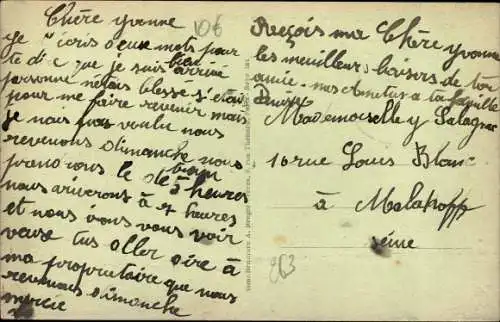 Chère Yvonne
Je t'écris deux mots pour
te dire que je suis bien arrivé
personne nétais blesse s'etais
pour me faire revenir mais
je nous pas voulu nous
revenons dimanche nous
prendrons le train de 5 heures
nous ariverons à 7 heures
et nous irons vous voir
veux tus aller dire à
ma propriétaire que nous
revenons dimanche
mercie
106
Reçois ma Chère Yvonne
les meuilleurs baisers de ton
amie. mes Amitus a ta famille
Denise
Mademoiselle y Salagnac
16 rue Louis Blanc
à Malakoff
seine
263